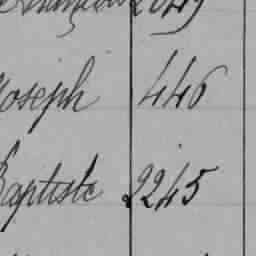 Joseph 446
Baptiste 2245